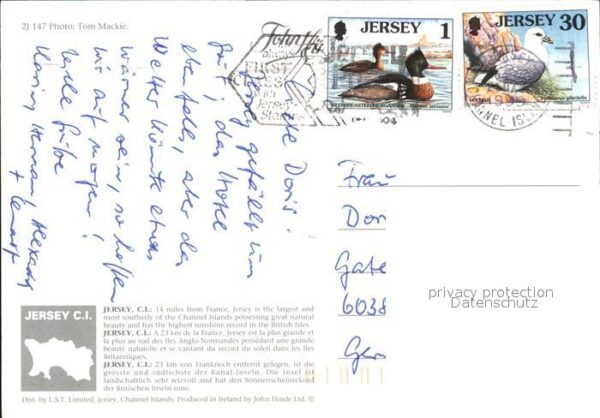 2J 147 Photo: Tom Mackie.
JERSEY 1
JERSEY 30
RED-BREASTED MERGANSER Mergus serrator
FULMAR Fulmarus glacialis
John
always
FIRST
Jersey
Stamps
Liebe Doris!
Jersey gefällt uns
gut, das Hotel
ebenfalls, aber das
Wetter könnte etwas
wärmer sein, so hoffen
wir auf morgen!
Liebe Grüße
Hermann
+
Frau
Dor
Gate
6038
Ger
privacy protection
Datenschutz
JERSEY C.I.
JERSEY, C.I.: 14 miles from France, Jersey is the largest and
most southerly of the Channel Islands possessing great natural
beauty and has the highest sunshine record in the British Isles.
JERSEY, C.I.: A 23 km de la France, Jersey est la plus grande et
la plus au sud des Iles Anglo-Normandes possédant une grande
beauté naturelle et se vantant du record du soleil dans les Iles
Britanniques.
JERSEY, C.I.: 23 km von Frankriech entfernt gelegen, ist die
grösste und südlichste der Kanal-Inseln. Die Insel ist
landschaftlich sehr reizvoll und hat den Sonnenscheinrekord
der Britischen Inseln inne.
Dist. by L.S.T. Limited, Jersey, Channel Islands. Produced in Ireland by John Hinde Ltd. ©